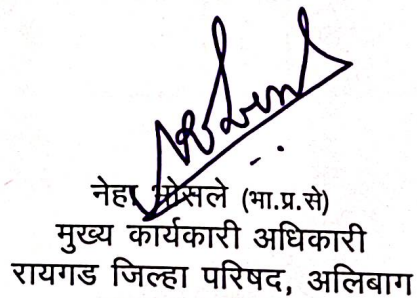 नेहा भोसले (भा.प्र.से)
मुख्य कार्यकारी अधिकारी
रायगड जिल्हा परिषद, अलिबाग